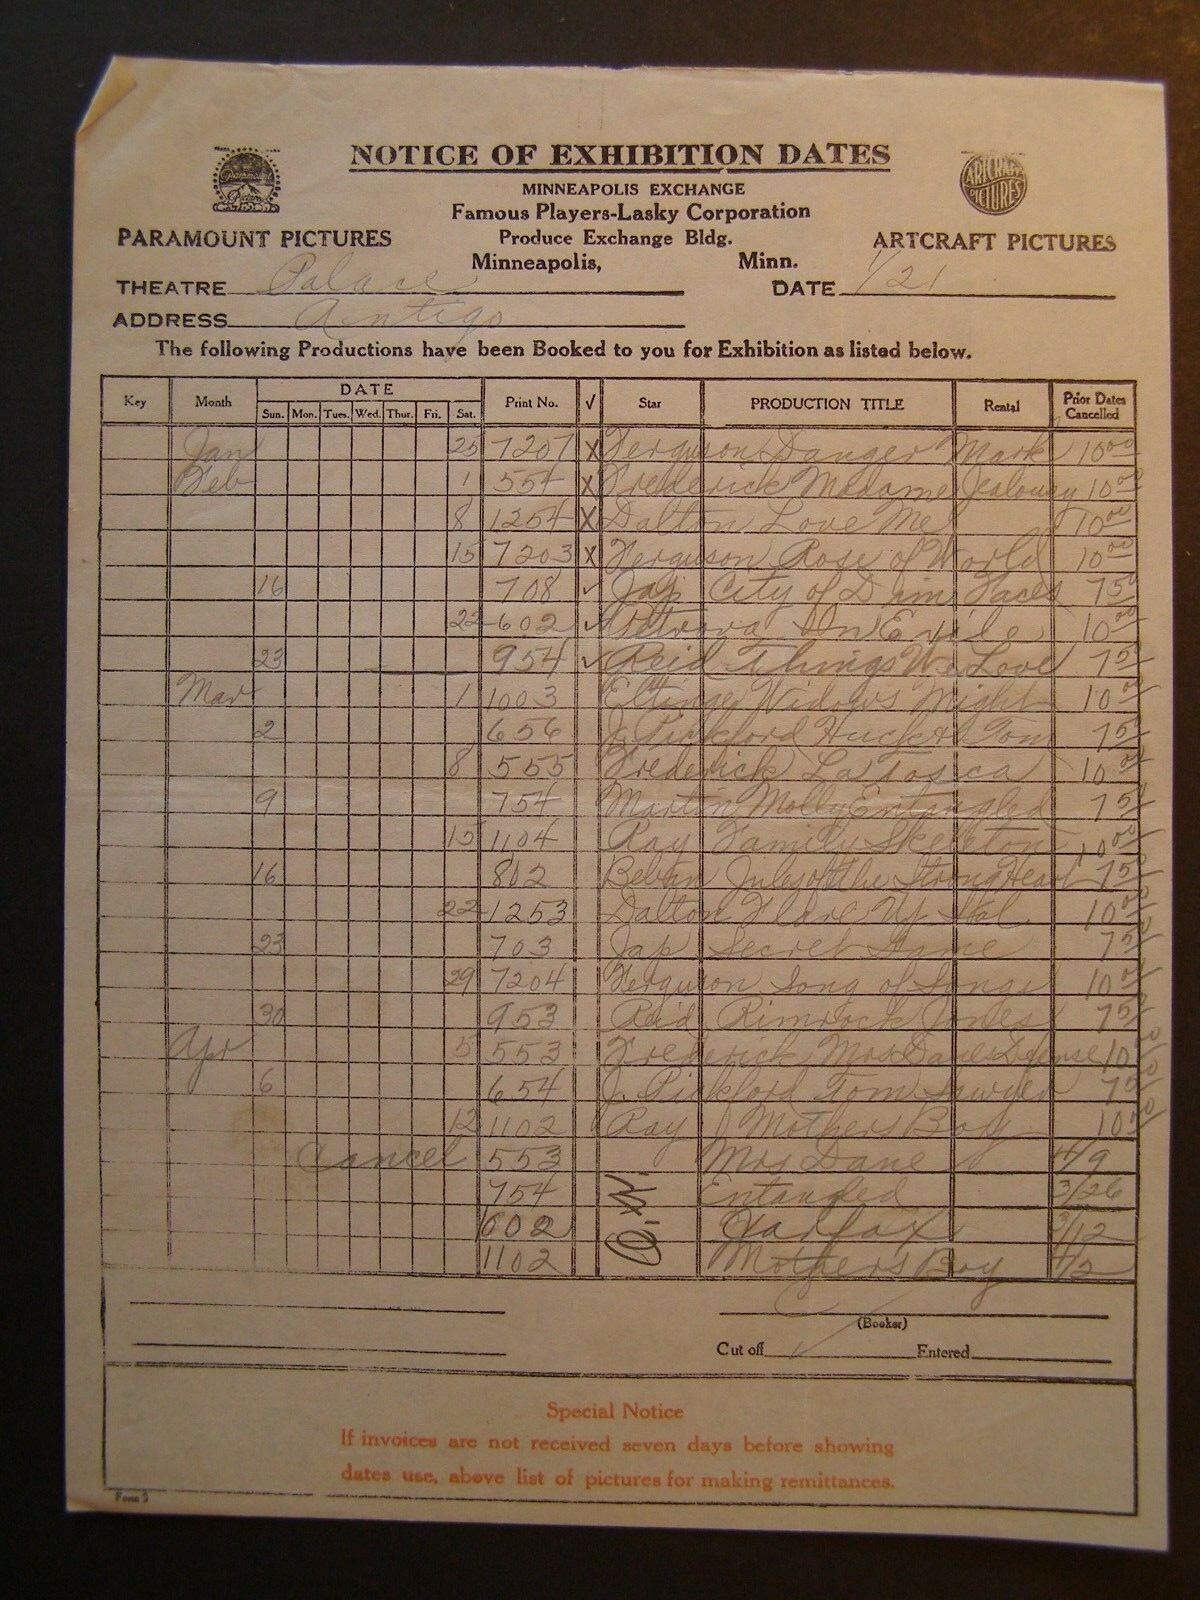 NOTICE OF EXHIBITION DATES
MINNEAPOLIS EXCHANGE
Famous Players-Lasky Corporation
Produce Exchange Bldg.
Minneapolis, Minn.
Paramount Pictures
PARAMOUNT PICTURES
ARTCRAFT PICTURES
ARTCRAFT PICTURES
THEATRE Palace DATE 1/21
ADDRESS Antigo
The following Productions have been Booked to you for Exhibition as listed below.
Key Month DATE Print No. √ Star PRODUCTION TITLE Rental Prior Dates Cancelled
Sun. Mon. Tues. Wed. Thur. Fri. Sat.
Jan 25 7207 X Ferguson Danger Mark 10 00
Feb 1 554 X Frederick Madame Jealousy 10 00
8 1254 X Dalton Love Me 10 00
15 7203 X Ferguson Rose of World 10 00
16 708 ✓ Jap City of Dim Faces 7 50
22 602 ✓ Petrova In Exile 10 00
23 954 ✓ Reid Things We Love 7 50
Mar 1 1003 Eltinge Widows Might 10 00
2 656 J. Pickford Huck & Tom 7 50
8 555 Frederick La Tosca 10 00
9 754 Martin Molly Entangled 7 50
15 1104 Ray Family Skeleton 10 00
16 802 Beban Jules of the Strong Heart 7 50
22 1253 Dalton Flare Up Sal. 10 00
23 703 Jap Secret Game 7 50
29 7204 Ferguson Song of Songs 10 00
30 953 Reid Rimrock Jones 7 50
Apr 5 553 Frederick Mrs Danes Defense 10 00
6 654 J. Pickford Tom Sawyer 7 50
12 1102 Ray Mothers Boy 10 00
Cancel 553 Mrs Dane 4/9
754 Entangled 3/26
602 Fairfax 3/12
1102 Mothers Boy 4/2
(Booker)
Cut off Entered
Special Notice
If invoices are not received seven days before showing
dates use, above list of pictures for making remittances.
Form 5